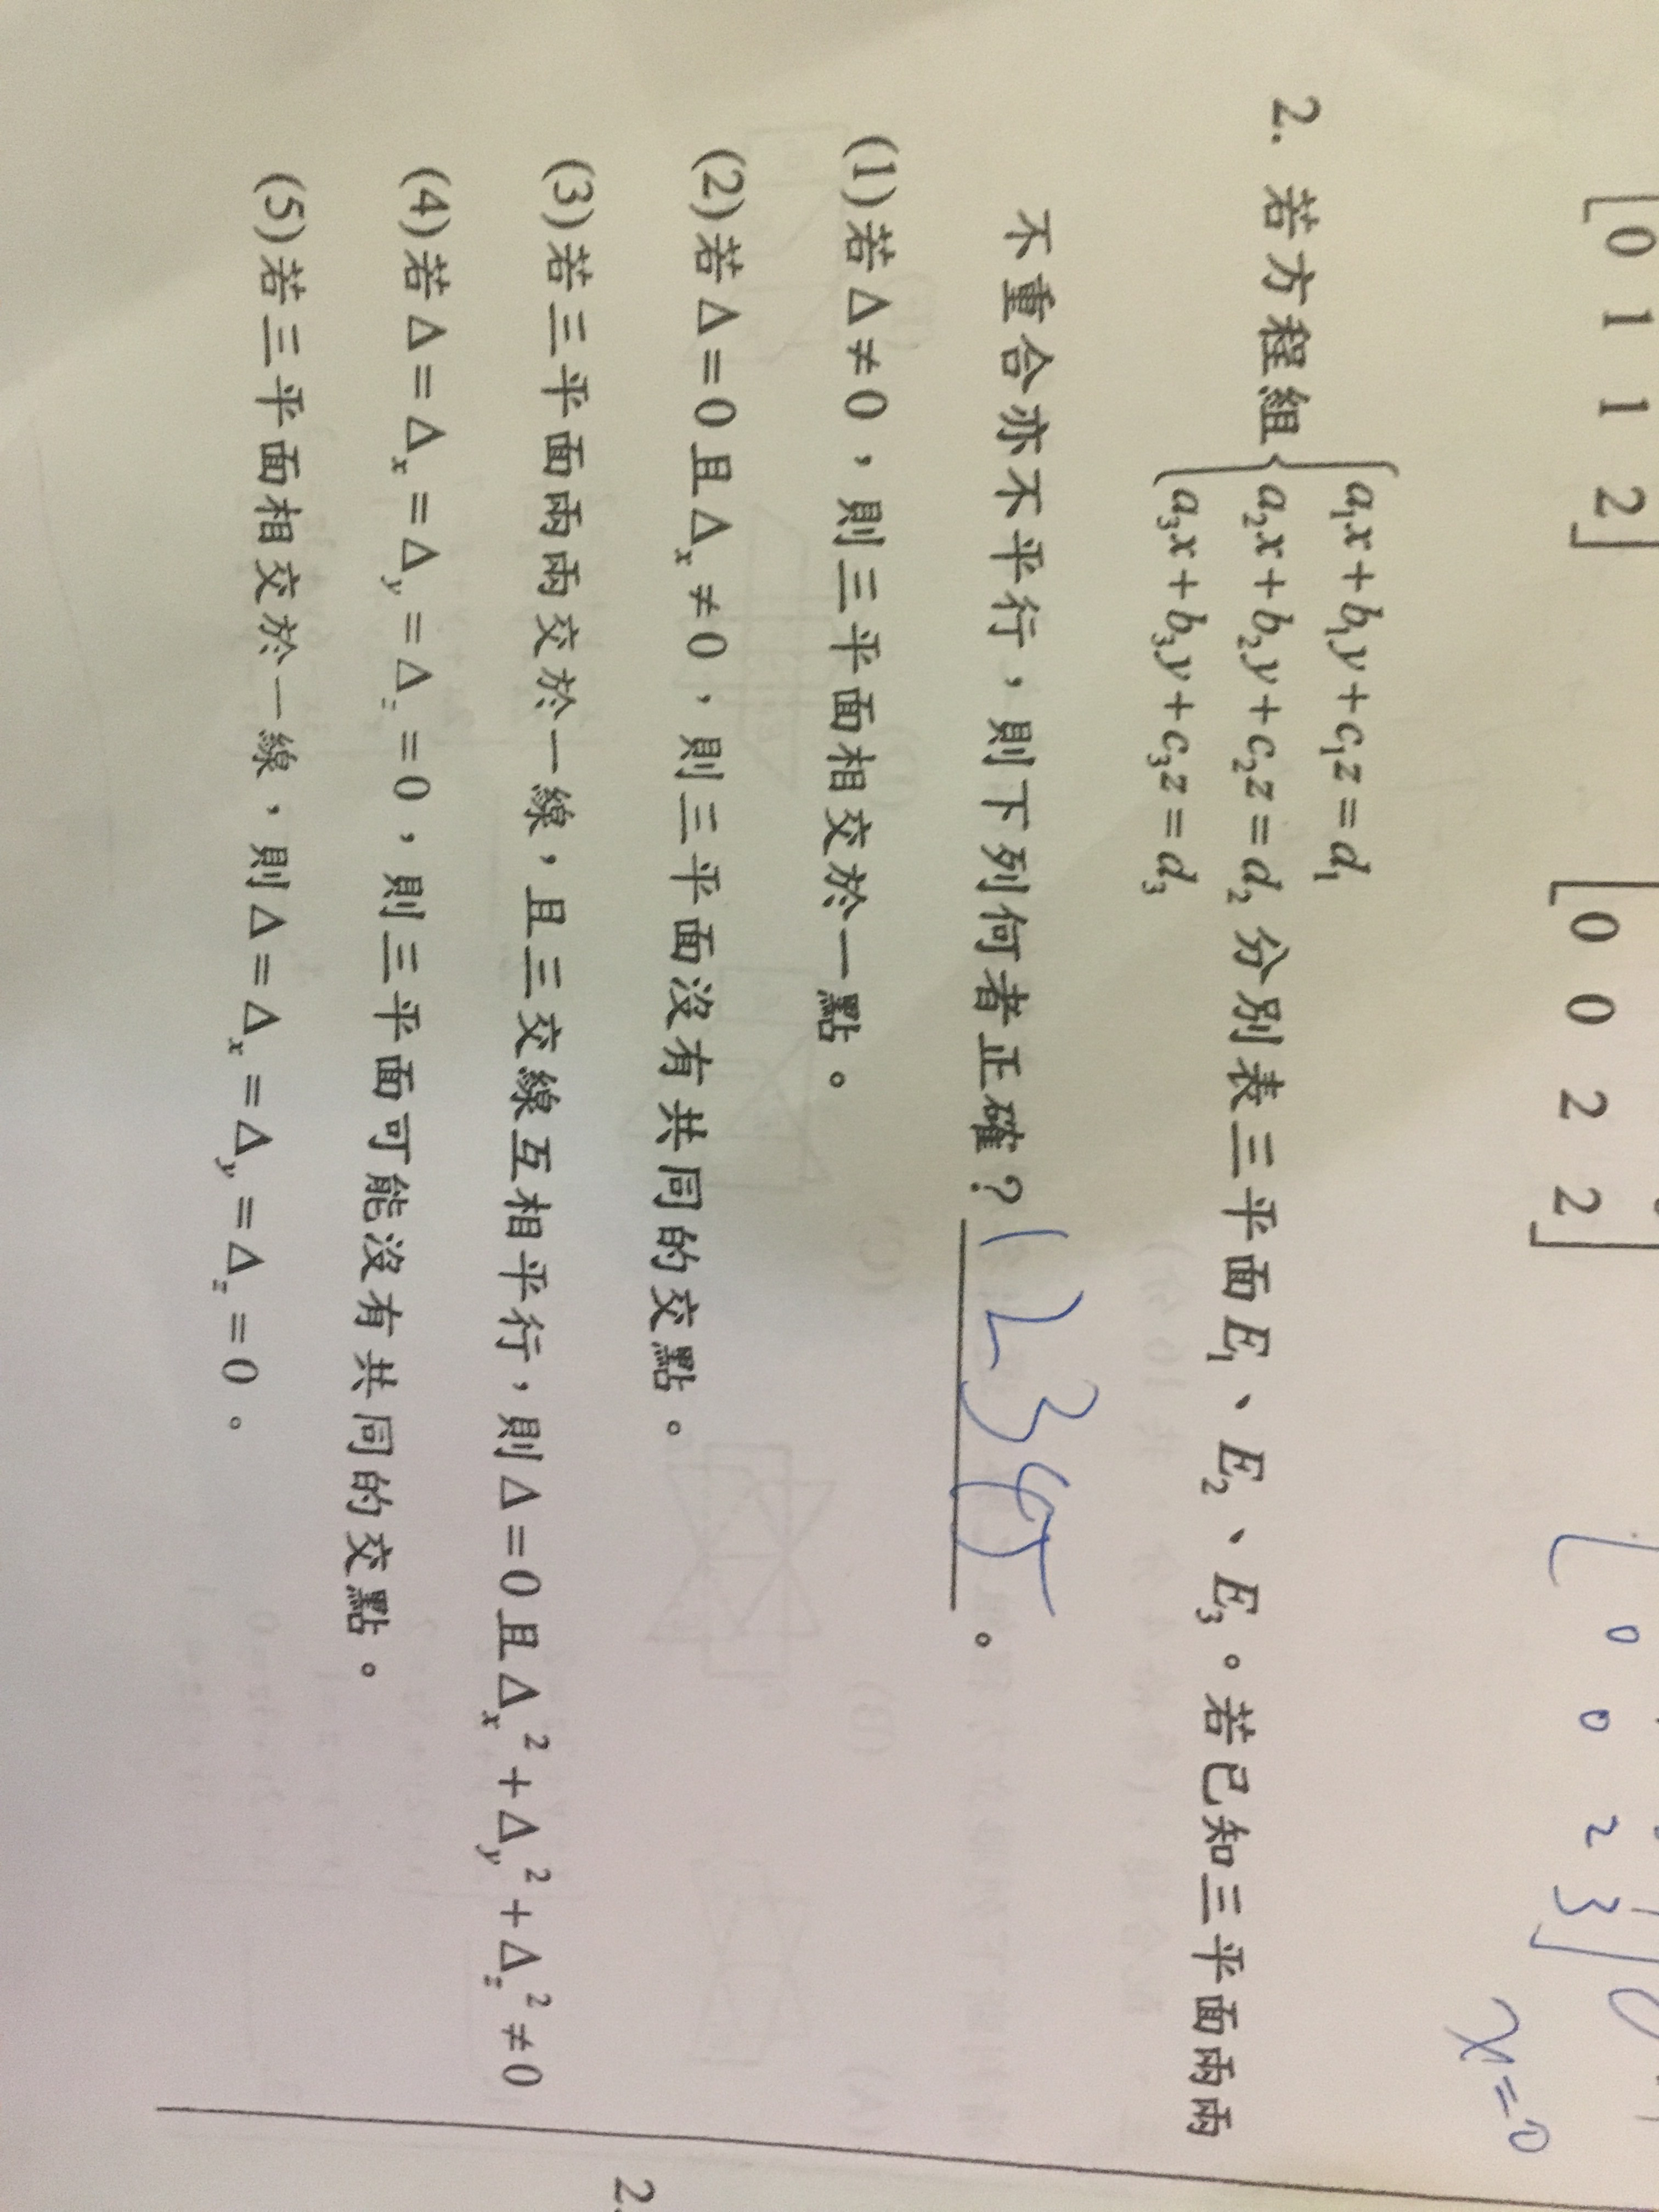 [0 1 1 2]
[0 0 2 2]
[0 0 2 3]
x=0
2. 若方程組{a₁x+b₁y+c₁z=d₁
a₂x+b₂y+c₂z=d₂分別表三平面E₁、E₂、E₃。若已知三平面兩兩
a₃x+b₃y+c₃z=d₃
不重合亦不平行,則下列何者正確?1 2 3 4 5。
(1)若Δ≠0,則三平面相交於一點。
(2)若Δ=0且Δₓ≠0,則三平面沒有共同的交點。
(3)若三平面兩兩交於一線,且三交線互相平行,則Δ=0且Δₓ²+Δy²+Δz²≠0
(4)若Δ=Δₓ=Δy=Δz=0,則三平面可能沒有共同的交點。
(5)若三平面相交於一線,則Δ=Δₓ=Δy=Δz=0。
2.